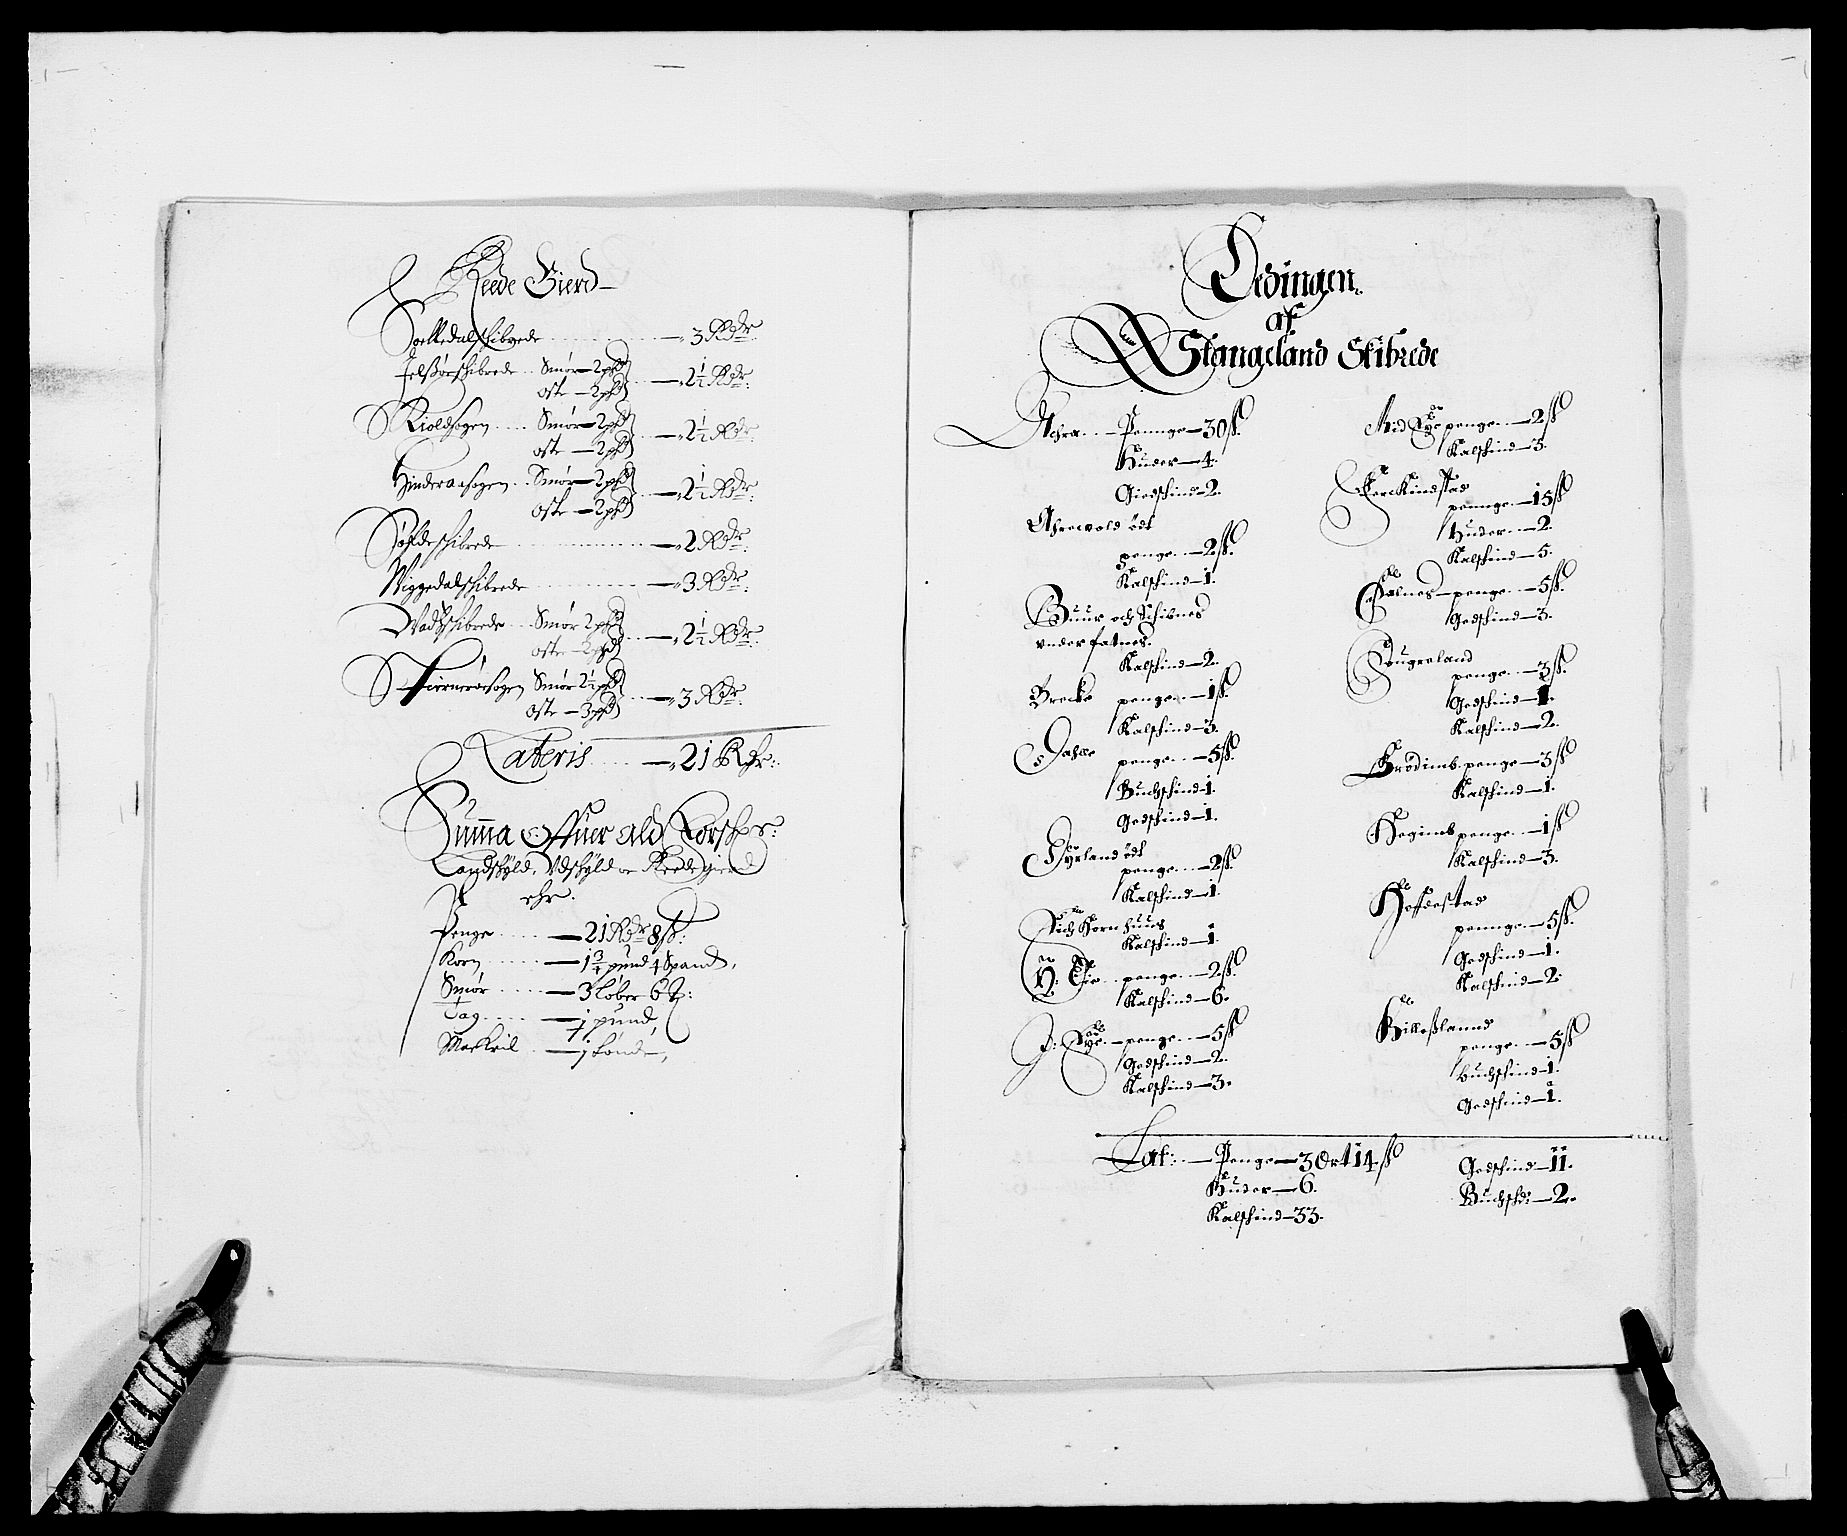 Reede Gierd
Soelkedalschibrede — 3 Rdr
Jelsørschibrede Smør — 2 pd
oste — 2 pd — 2½ Rdr:
Skioldsogen Smør — 2 pd
oste — 2 pd — 2½ Rdr
Hinderaasogen Smør — 2 pd
oste — 2 pd — 2½ Rdr:
Søfdeschibrede — 2 Rdr:
Wiggedalschibrede — 3 Rdr:
Wadtzschibrede Smør 2 pd
oste — 2 pd — 2½ Rdr:
Fiernerøsogen Smør 2½ pd
oste — 3 pd — 3 Rdr.
Lateris — 21 Rdr:
Summa Offuer ald Korschs:
Landskyld, Vdskyld oc Reedegierd
ehr.
Penge — 21 Rdr 8 ß:
Korn — 1¾ pund 4 Spand,
Smør — 3 løber 6
Tag — 1 pund,
Mackril — 1 tønde,
Ledingen
aff
Stangeland Skibrede
Achra — Pennge — 30 ß.
Huder — 4.
Giedschind — 2.
Ahrewold ödt
penge — 2 ß.
Kalschind — 1.
Buur och Schibnes
vnder fatnes.
Kalschind — 2.
Brecke penge — 1 ß.
Kalschind — 3.
Dahle penge — 5 ß.
Buchschind — 1.
Gedschind — 1.
Dyrland ödt
penge — 2 ß.
Kalschind — 1.
Kornhuus
Kalschind — 1.
penge — 2 ß.
Kalschind — 6.
penge — 5 ß
Gedschind — 2.
Kalschind — 3.
Mid penge — 2 ß
Kalschind — 3.
Ferckindstad
pennge — 15 ß
Huder — 2.
Kalschind — 5.
Falnes — penge — 5 ß.
Gedschind — 3.
Fugreland
penge — 3 ß.
Gedschind — 1.
Kalschind — 2.
Grödimb penge — 3 ß
Kalschind — 1.
Hegimb penge — 1 ß
Kalschind — 3.
Hoffdestad
pennge — 5 ß.
Gedschind — 1.
Kalschind — 2.
Hilleßlannd
penge — 5 ß
Buchschind — 1.
Gedschind — 1.
Lat: — Penge — 3 Ort 14 ß
Huder — 6.
Kalschind — 33.
Gedschind — 11.
Buchschd: — 2.